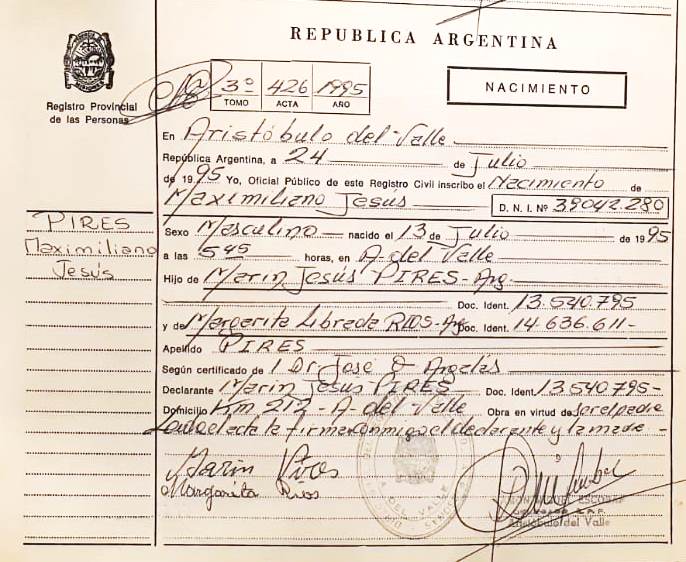 REPUBLICA ARGENTINA
Registro Provincial
de las Personas
3º 426 1995
TOMO ACTA AÑO
NACIMIENTO
En Aristóbulo del Valle
República Argentina, a 24 de Julio
de 1995 Yo, Oficial Público de este Registro Civil inscribo el Nacimiento de
Maximiliano Jesús D. N. I. Nº 39042.280
PIRES
Maximiliano
Jesús
Sexo Masculino nacido el 13 de Julio de 1995
a las 545 horas, en A. del Valle
Hijo de Marin Jesús PIRES - Arg
Doc. Ident. 13.540.795
y de Margarita Librada RIOS - Ag Doc. Ident. 14.636.611-
Apellido PIRES
Según certificado de Dr. José O
Declarante Marin Jesús PIRES Doc. Ident. 13540795-
Domicilio Km 212 - A- del Valle Obra en virtud de ser el padre
la firma conmigo el declarante y la madre -
Marin Pires
Margarita Rios
A DEL VALLE
ESCOBAR
Aristóbulo del Valle